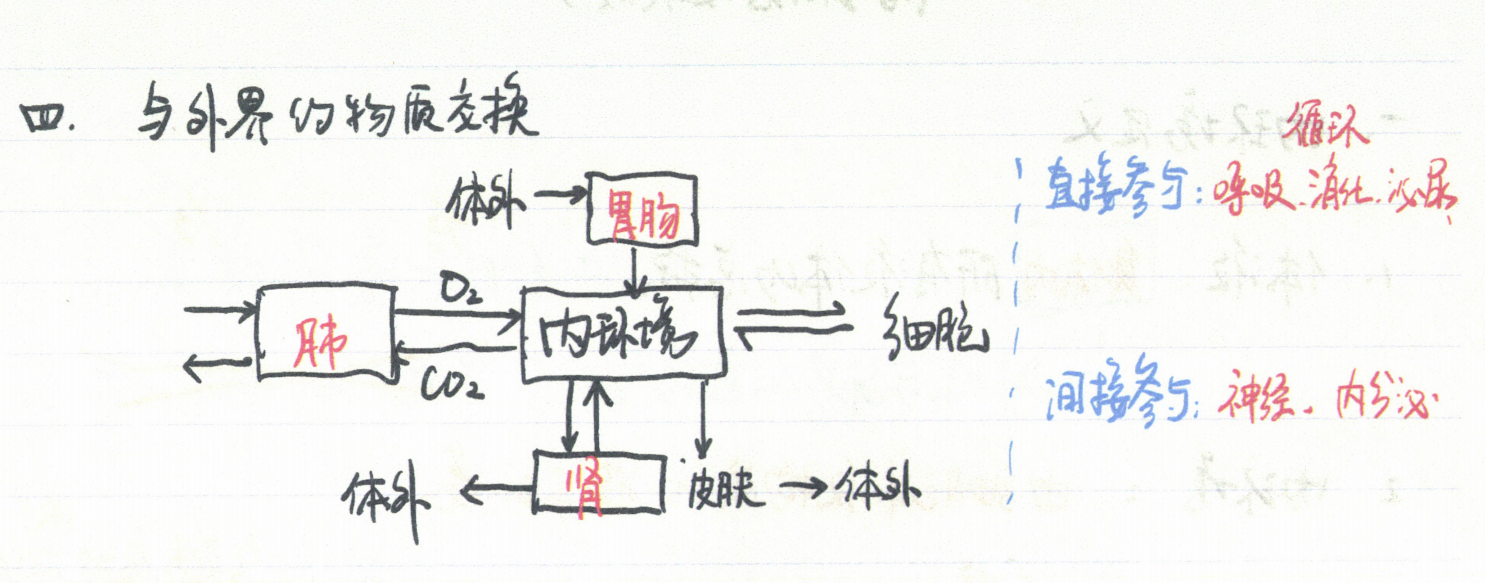 四. 与外界的物质交换
循环
直接参与: 呼吸.消化.泌尿
体外
胃肠
O₂
肺
内环境
细胞
CO₂
间接参与: 神经. 内分泌
体外
肾
皮肤
体外